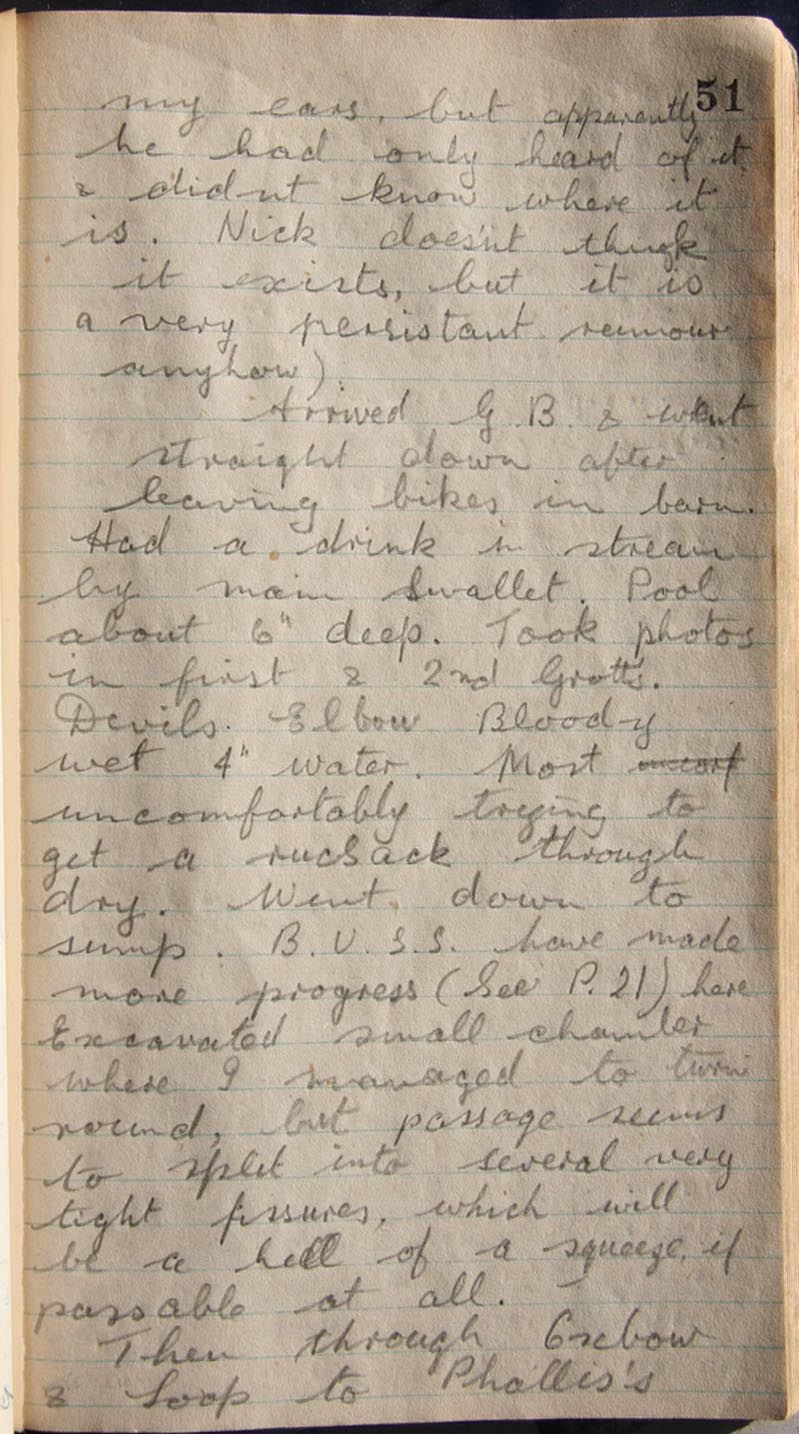 51
my ears, but apparently
he had only heard of it
& didnt know where it
is. Nick does'nt think
it exists, but it is
a very persistant rumour
anyhow).
Arrived G.B. & went
straight down after
leaving bikes in barn.
Had a drink in stream
by main Swallet. Pool
about 6" deep. Took photos
in first & 2nd Grotto's.
Devils Elbow Bloody
wet 4" water. Most
uncomfortably trying to
get a rucsack through
dry. Went down to
sump. B.U.S.S. have made
more progress (See P. 21) here
Excavated small chamber
where I managed to turn
round, but passage seems
to split into several very
tight fissures, which will
be a hell of a squeeze, if
passable at all.
Then through Oxbow
& Loop to Phallis's